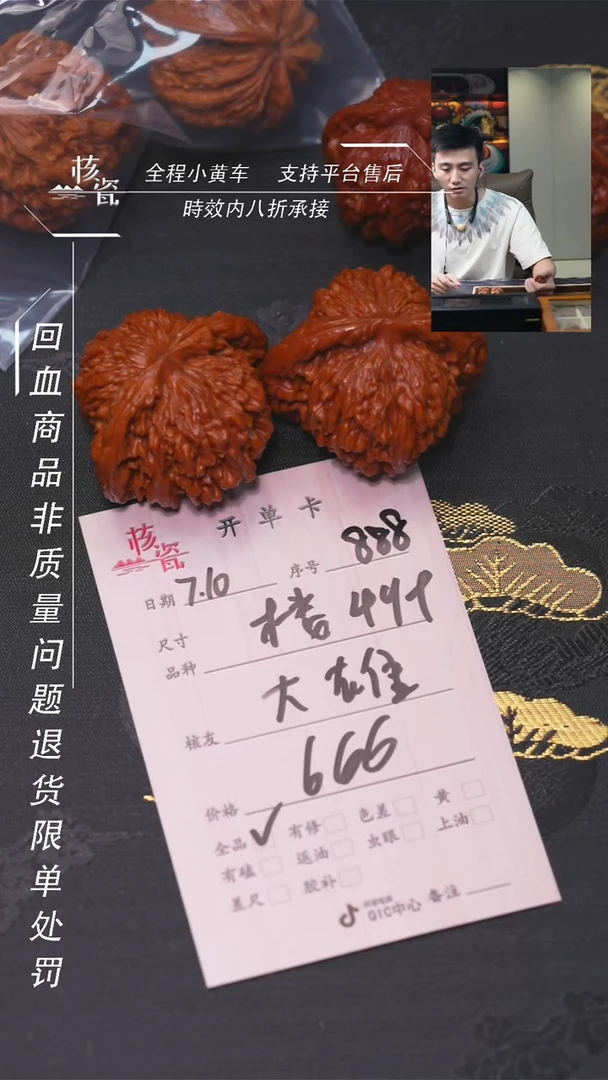 核瓷
全程小黄车 支持平台售后
時效内八折承接
回血商品非质量问题退货限单处罚
核瓷
开单卡
日期 7.10 序号 888
尺寸
品种 楂 44+
核友 大雄
价格 666
全品 ✓ 有修 色差 黄
有磕 返油 虫眼 上油
差尺 胶补
QIC中心 备注